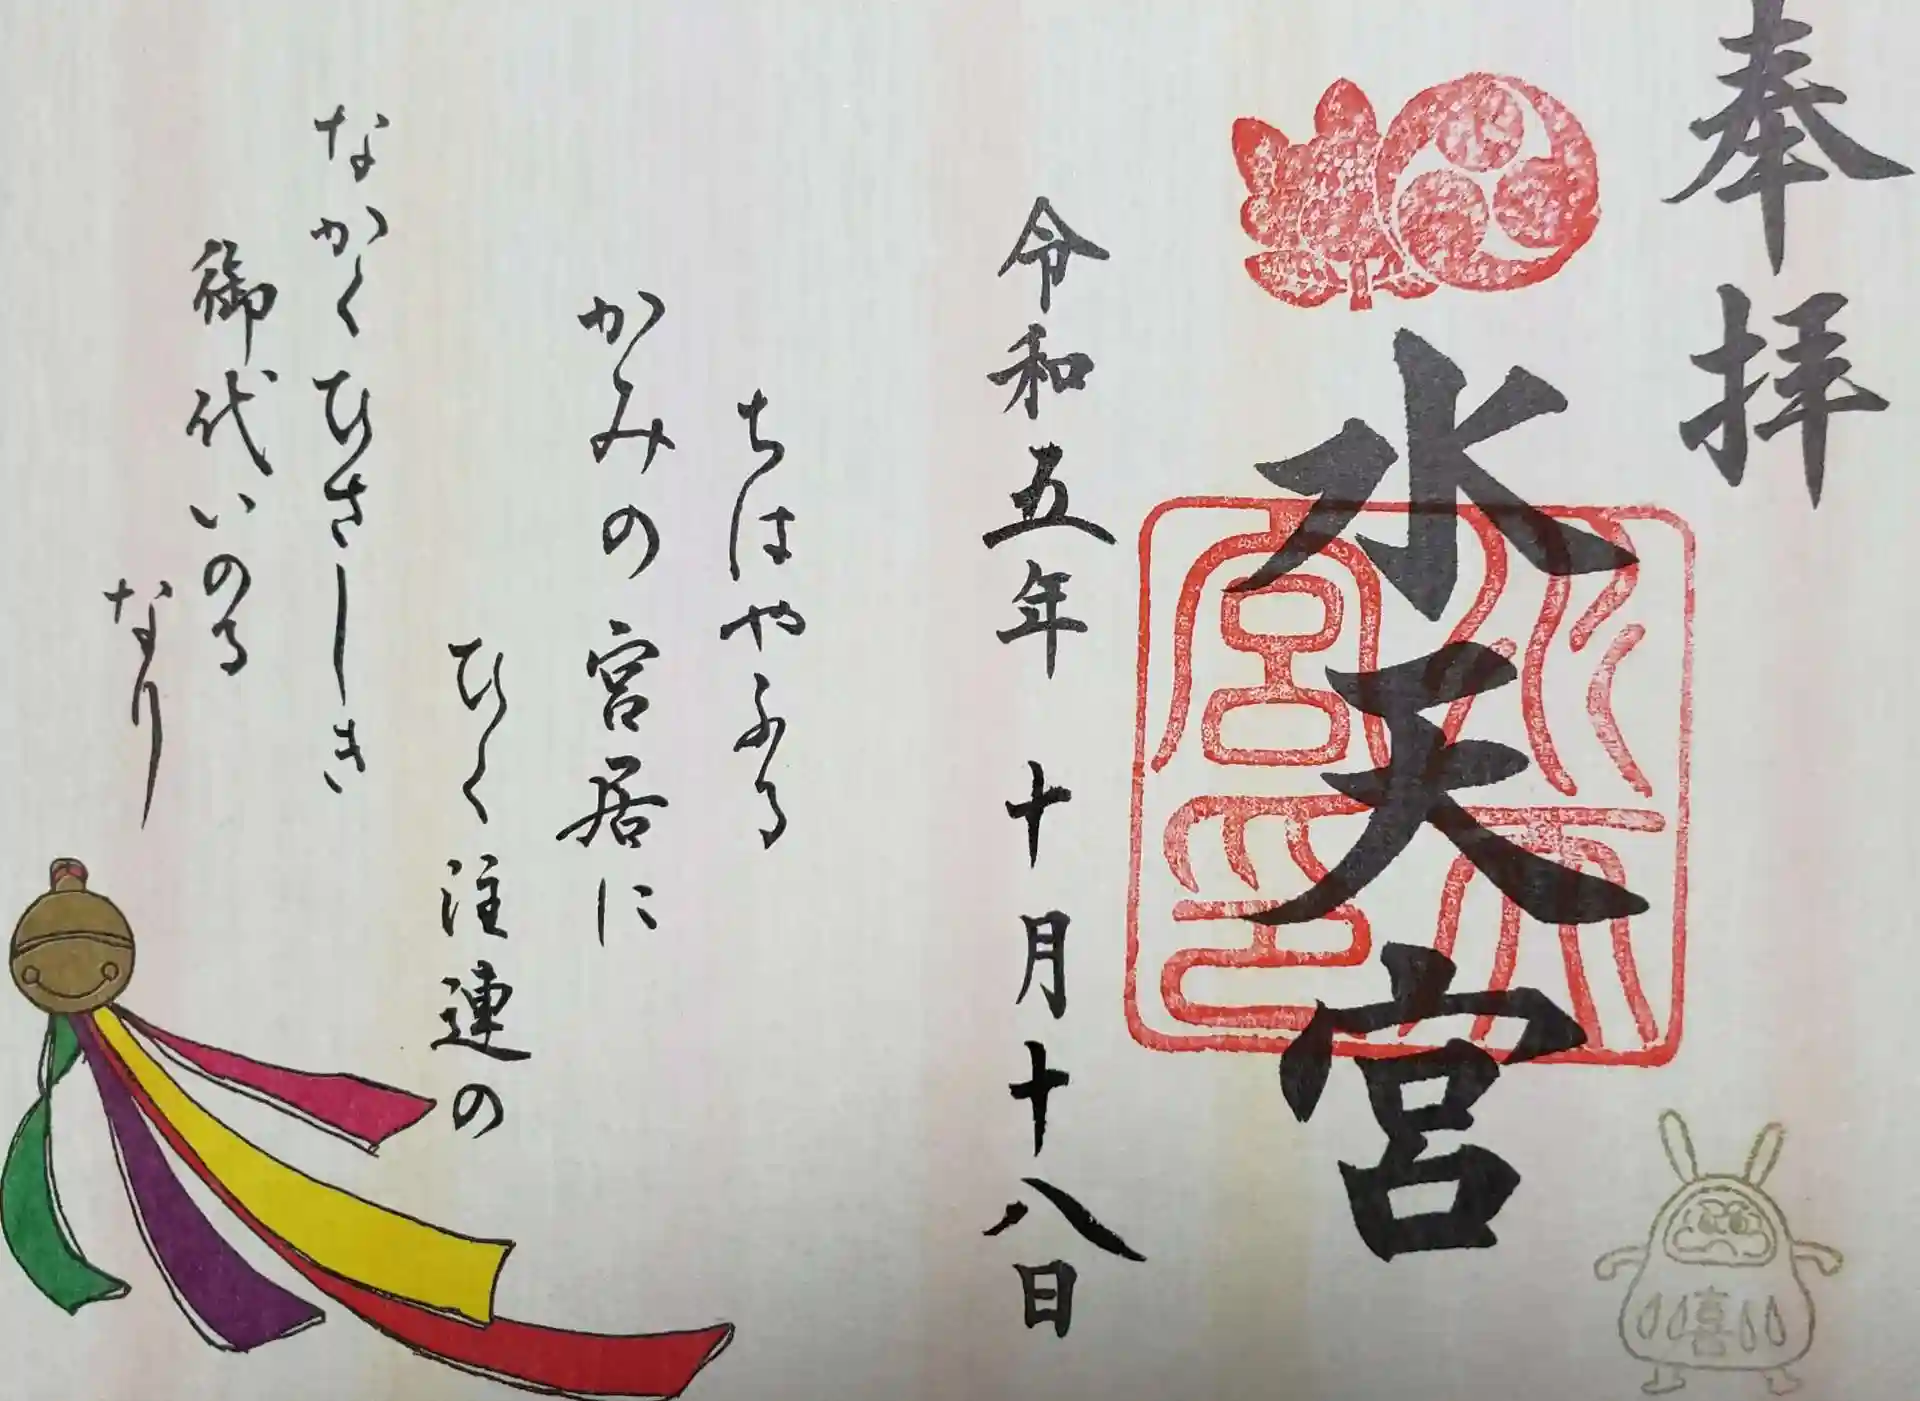 奉拝
水天宮
水天宮印
令和五年 十月十八日
ちはやふる
かみの宮居に
ひく注連の
なかくひさしき
御代いのる
なり
喜